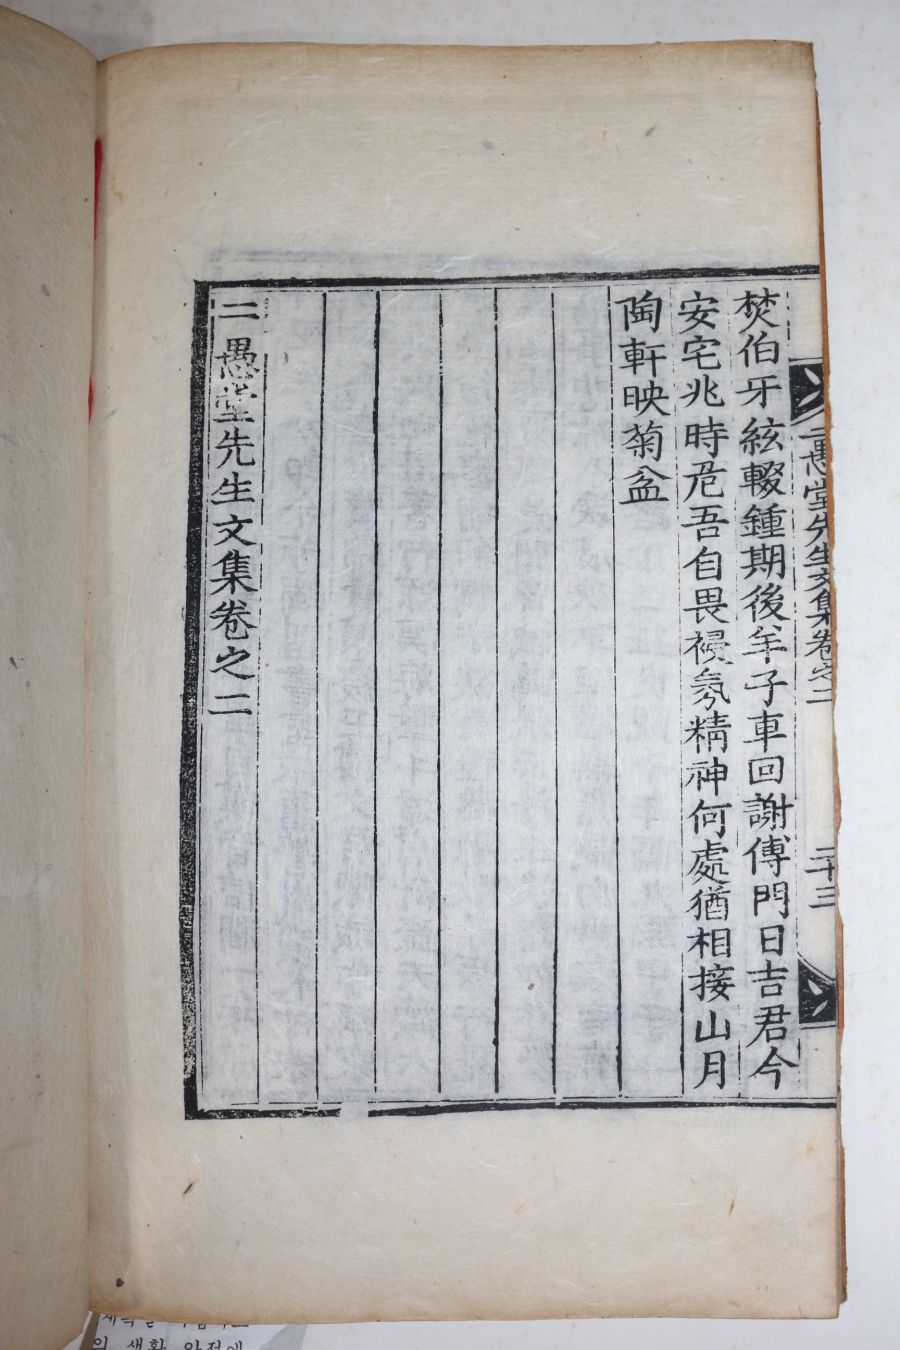 二愚堂先生文集卷之二
二十三
焚伯牙絃輟鍾期後牟子車回謝傅門日吉君今
安宅兆時危吾自畏祲氛精神何處猶相接山月
陶軒映菊盆
二愚堂先生文集卷之二
의 생활 안정에